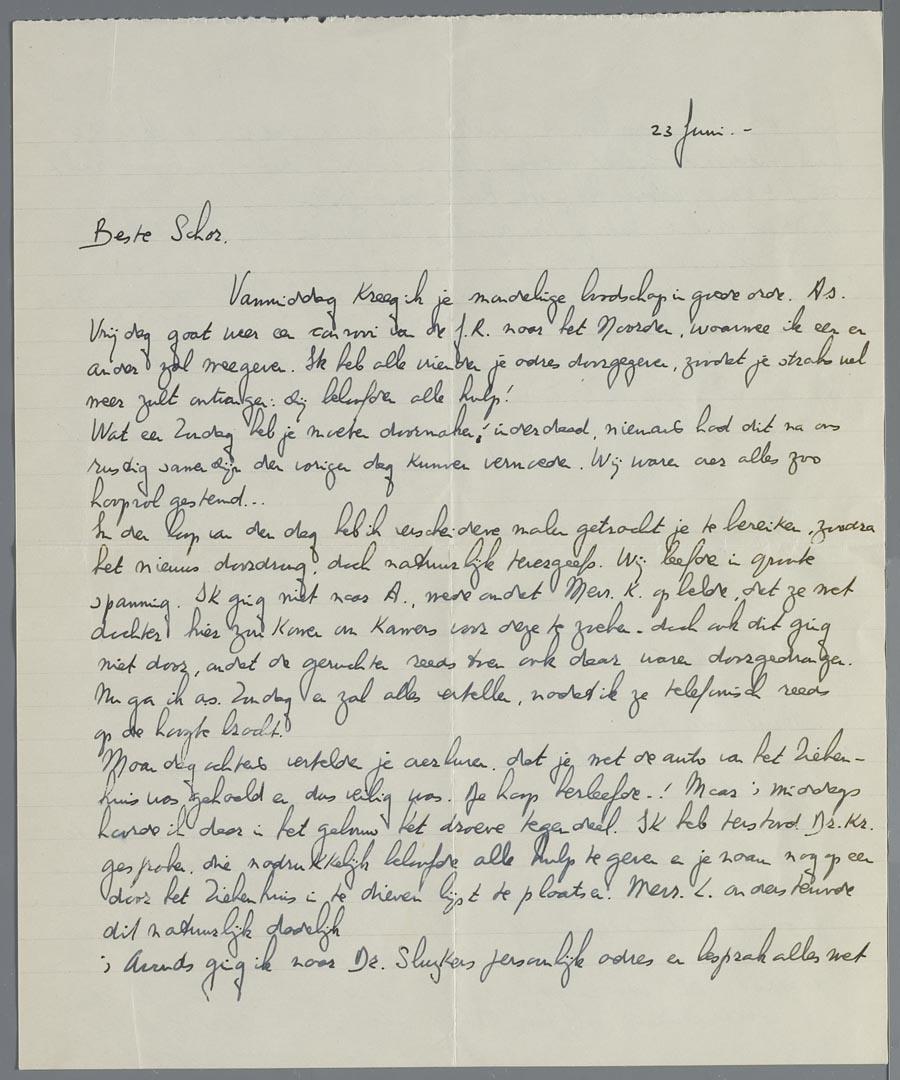 23 Juni. -
Beste Schor.
Vanmiddag kreeg ik je mondelinge boodschap in goede orde. A.s.
Vrijdag gaat weer een convooi van de J.R. naar het Noorden, waarmee ik een en
ander zal meegeven. Ik heb alle vrienden je adres doorgegeven, zoodat je straks wel
meer zult ontvangen: zij beloofden alle hulp!
Wat een Zondag heb je moeten doormaken! inderdaad, niemand had dit na ons
rustig samenzijn den vorigen dag kunnen vermoeden. Wij waren over alles zoo
hoopvol gestemd...
In den loop van den dag heb ik verscheidene malen getracht je te bereiken, zoodra
het nieuws doordrong, doch natuurlijk tevergeefs. Wij leefden in groote
spanning. Ik ging niet naar A., mede omdat Mevr. K. opbelde, dat ze met
dochter hier zou komen om kamers voor deze te zoeken - doch ook dit ging
niet door, omdat de geruchten reeds toen ook daar waren doorgedrongen.
Nu ga ik a.s. Zondag en zal alles vertellen, nadat ik ze telefonisch reeds
op de hoogte bracht.
Maandagochtend vertelden je overburen, dat je met de auto van het Zieken-
huis was gehaald en dus veilig was. De hoop herleefde -! Maar 's middags
hoorde ik daar in het gebouw het droeve tegendeel. Ik heb terstond Dr. Kr.
gesproken, die nadrukkelijk beloofde alle hulp te geven en je naam nog op een
door het Ziekenhuis in te dienen lijst te plaatsen. Mevr. L. ondersteunde
dit natuurlijk dadelijk
's Avonds ging ik naar Dr. Sluykers persoonlijk adres en besprak alles met